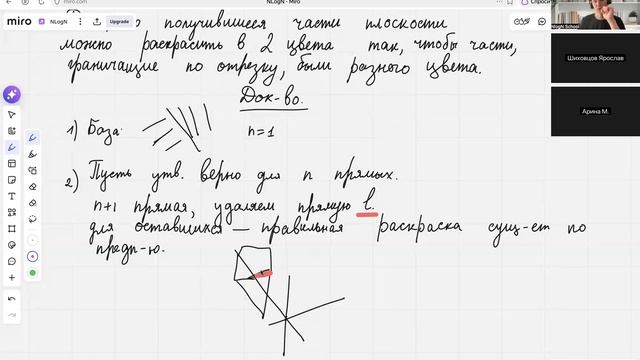 miro.com
NLogN - Miro
miro
NLogN
Upgrade
NlogN School
получившиеся части плоскости
можно раскрасить в 2 цвета так, чтобы части,
граничащие по отрезку, были разного цвета.
Док-во.
1) База: n=1
2) Пусть утв. верно для n прямых.
n+1 прямая, удаляем прямую l.
для оставшихся — правильная раскраска сущ-ет по
предп-ю.
Шиховцов Ярослав
Арина М.